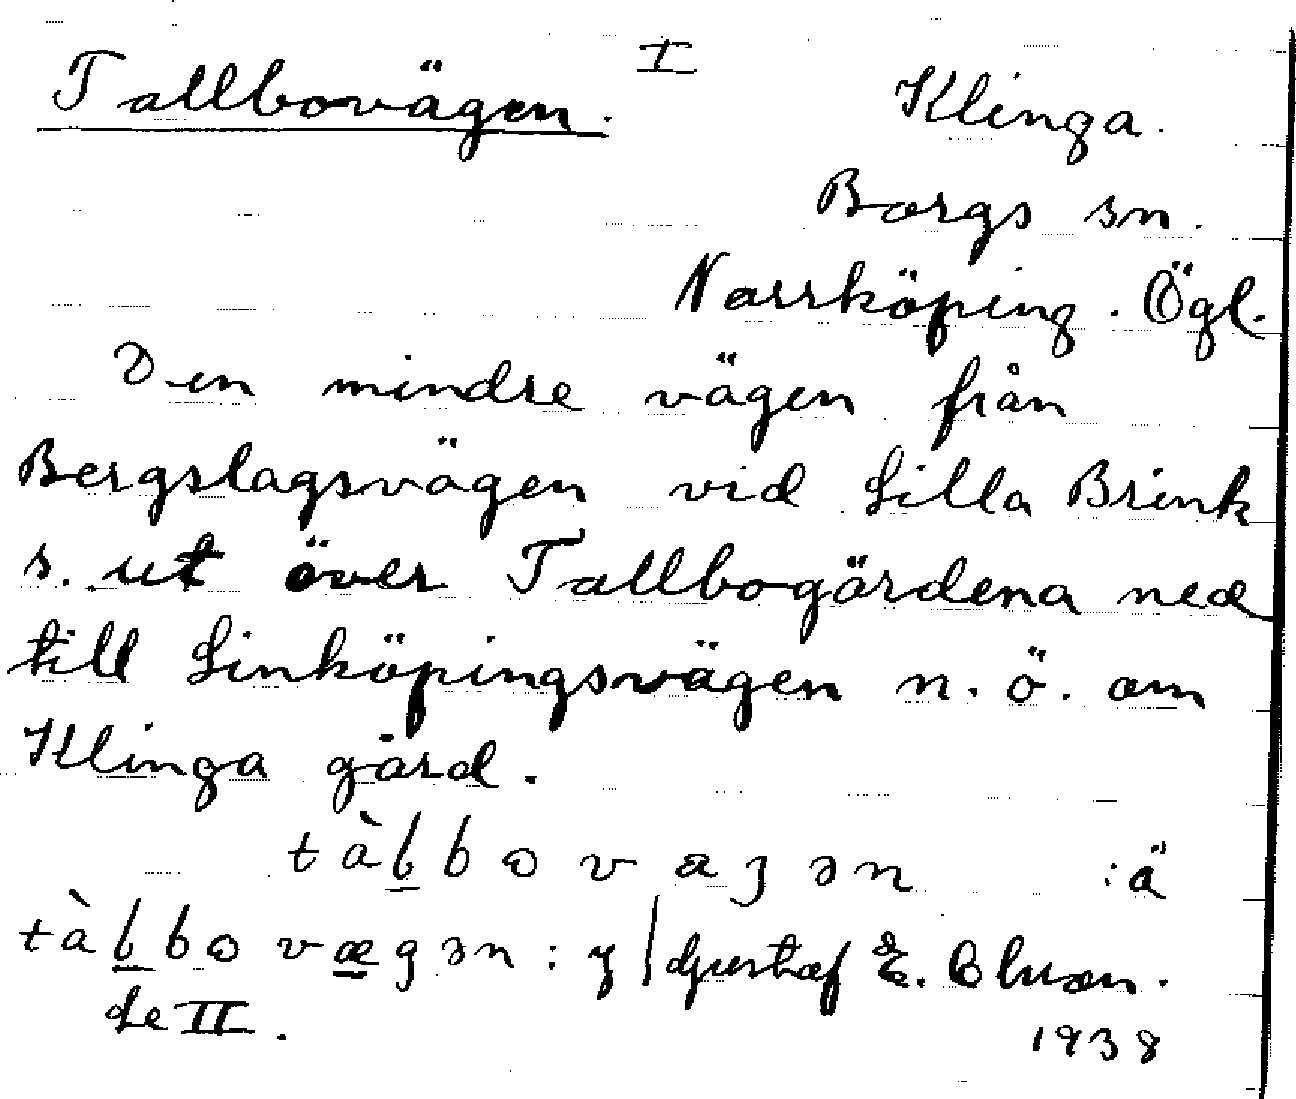 Tallbovägen. I Klinga.
Borgs sn.
Norrköping. Ögl.
Den mindre vägen från
Bergslagsvägen vid Lilla Brink
s. ut över Tallbogärdena ned
till Linköpingsvägen n. ö. om
Klinga gård.
tàḷbovaȝən :ä
tàḷbovægən : y | Gustaf E. Bluson.
Se II.
1938